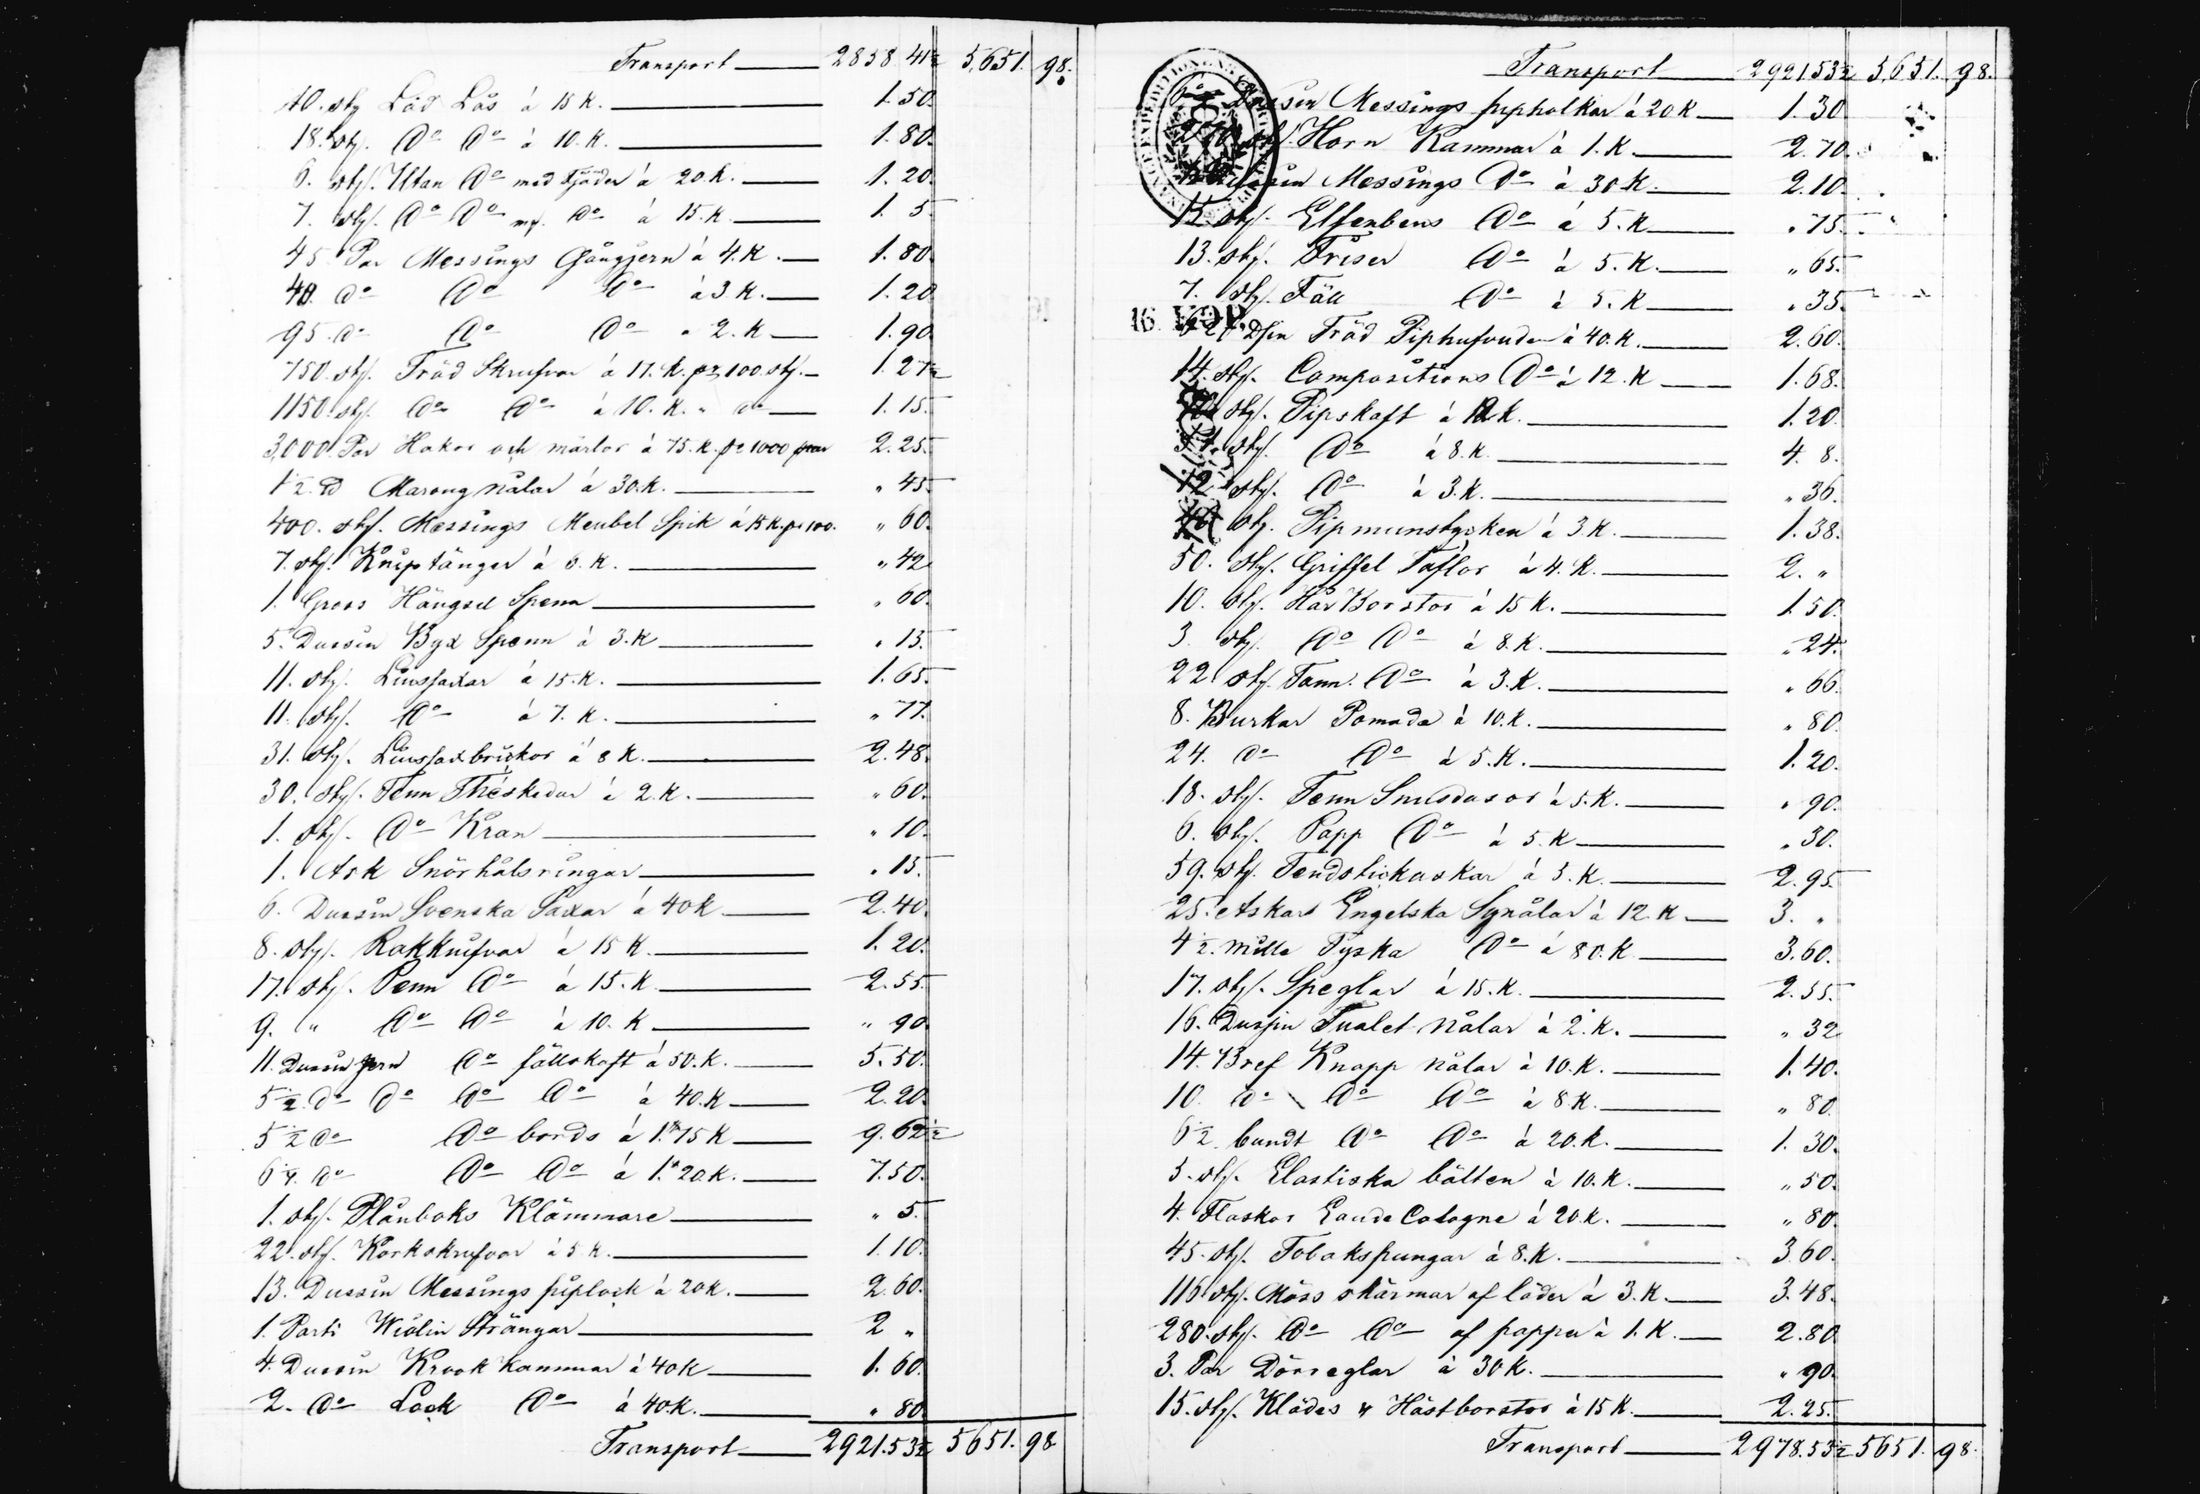 Transport 2858 41½ 5,651. 98.
10. stÿ Låd Lås á 15 K. 1.50.
18. stÿ. Do Do á 10. K. 1.80.
6. stÿ. Utan Do med fjäder á 20. K. 1.20.
7. stÿ. Do Do m. Do á 15. K. 1. 5
45 Par Messings Gångjern á 4. K. 1.80.
40. do Do Do á 3. K. 1.20
95. do Do Do " 2. K 1.90.
750. stÿ. Träd Skrufvar á 17. K. pr 100. stÿ. 1.27½
1150. stÿ. Do Do á 10. K. " do 1.15.
3,000. Par Hakor och märlor á 75. K. pr 1000 par 2.25.
1½ ℔ Marong nålar á 30. K. " 45
400. stÿ. Messings Meubel Spik á 15 K. pr 100. " 60.
7. stÿ. Kniptänger á 6. K. " 42
1. Gross Hängsel Spenn " 60.
5. Dussin Byx Spenn á 3. K " 15.
11. stÿ. Ljussaxar á 15. K. 1.65.
11. stÿ. Do á 7. K. " 77.
31. stÿ. Ljussaxbrickor á 8 K. 2.48.
30. stÿ. Tenn Théskedar á 2. K. " 60.
1. stÿ. Do Kran " 10.
1. Ask Snörhålsringar " 15.
6. Dussin Svenska Saxar á 40 K 2.40.
8. stÿ. Rakknifvar á 15 K. 1.20.
17. stÿ. Penn Do á 15. K. 2.55.
9. " Do Do á 10. K " 90
11. Dussin Jern Do fällskaft á 50. K. 5.50.
5½. Do Do Do Do á 40. K 2.20.
5½ Do Do bords á 1. 75 K 9.62½
6¼. Do Do Do á 1. 20. K. 7.50.
1. stÿ. Plånboks Klämmare " 5.
22. stÿ. Korkskrufvar á 5 K. 1.10.
13. Dussin Messings piplock á 20 K. 2.60.
1. Parti Wiolin Strängar 2 "
4. Dussin Krook Kammar á 40 K 1.60.
2. Do Lock Do á 40. K. " 80
Transport 2921.53½ 5651. 98
Transport 2921 53½ 5651. 98.
Dussin Messings pipholkar á 20 K 1. 30
270 stÿ. Horn Kammar á 1. K 2.70.
Dussin Messings Do á 30 K. 2.10.
15. stÿ. Elfenbens Do á 5. K " 75
13. stÿ. Friser Do á 5. K. " 65.
7. stÿ. Fäll Do á 5. K " 35.
16. KOP.
Dsin Träd Piphufvuden á 40. K. 2.60.
14. stÿ. Compositions Do á 12. K 1.68.
stÿ. Pipskaft á 12 K. 1.20.
51. stÿ. Do á 8. K. 4. 8.
12 stÿ. Do á 3. K. " 36.
stÿ. Pipmunstycken á 3. K. 1.38.
50. stÿ. Griffel Taflor á 4. K. 2. "
10. stÿ. Hår Borstor á 15 K. 1.50.
3 stÿ. Do Do á 8. K. " 24.
22. stÿ. Tann Do á 3. K. " 66.
8. Burkar Pomada á 10. K. " 80.
24. Do Do á 5. K. 1.20.
18. stÿ. Tenn Snusdosor á 5. K. " 90.
6. stÿ. Papp Do á 5. K " 30.
59. stÿ. Tendstickaskar á 5. K. 2.95.
25. Askar Engelska Synålar á 12. K 3. "
4½. mille Tyska Do á 80. K 3.60.
17. stÿ. Speglar á 15. K. 2.55.
16. Dussin Tualet nålar á 2. K. " 32
14. Bref Knapp nålar á 10. K. 1.40.
10. Do Do Do á 8 K. " 80.
6½. bundt Do Do á 20. K. 1. 30.
5. stÿ. Elastiska bälten á 10. K. " 50.
4. Flaskor Eau de Cologne á 20. K. " 80.
45. stÿ. Tobakspungar á 8. K. 3.60.
116 stÿ. Möss skärmar af läder á 3. K. 3.48.
280. stÿ. Do Do af papper á 1. K. 2.80
3. Par Dörreglar á 30 K. " 90.
15. stÿ. Klädes & Hästborstor á 15 K. 2.25.
Transport 2978.53½ 5651. 98.